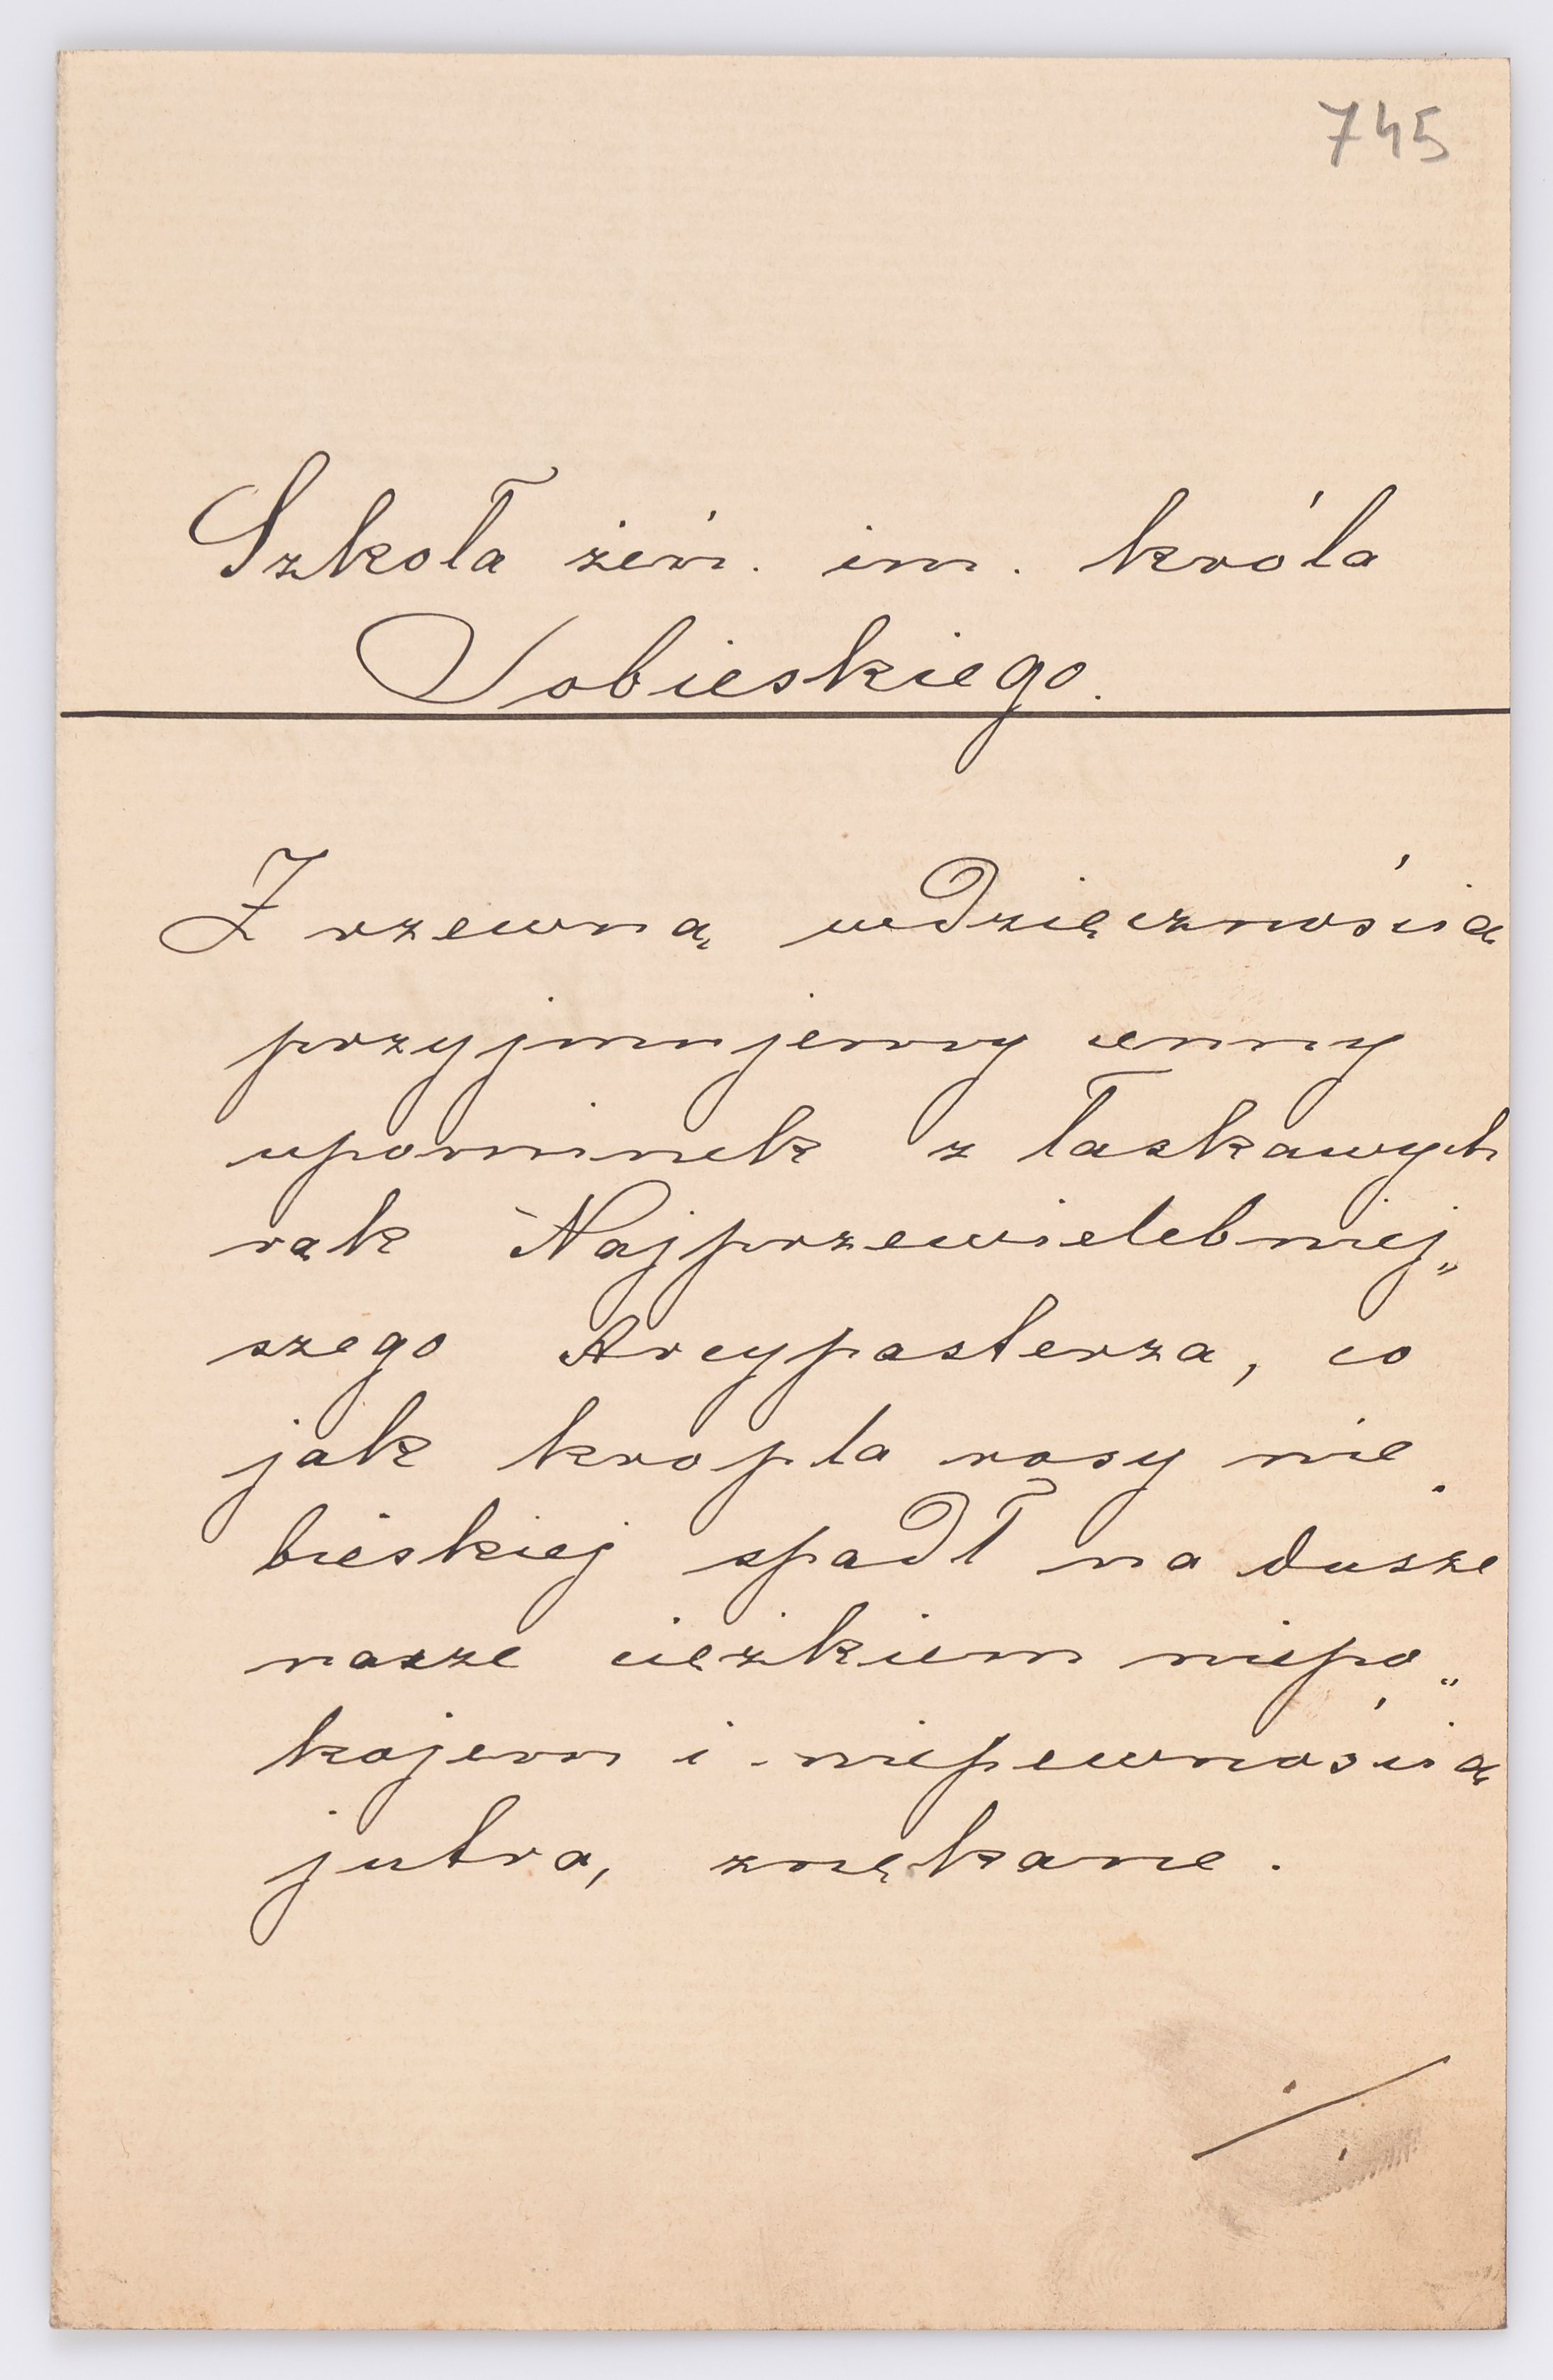 745
Szkoła żeń. im. króla
Sobieskiego.
Z rzewną wdzięcznością
przyjmujemy cenny
upominek z łaskawych
rąk Najprzewielebniej„
szego Arcypasterza, co
jak kropla rosy nie
bieskiej spadł na dusze
nasze ciężkiem niepo„
kojem i niepewnością
jutra, znękane.
./.